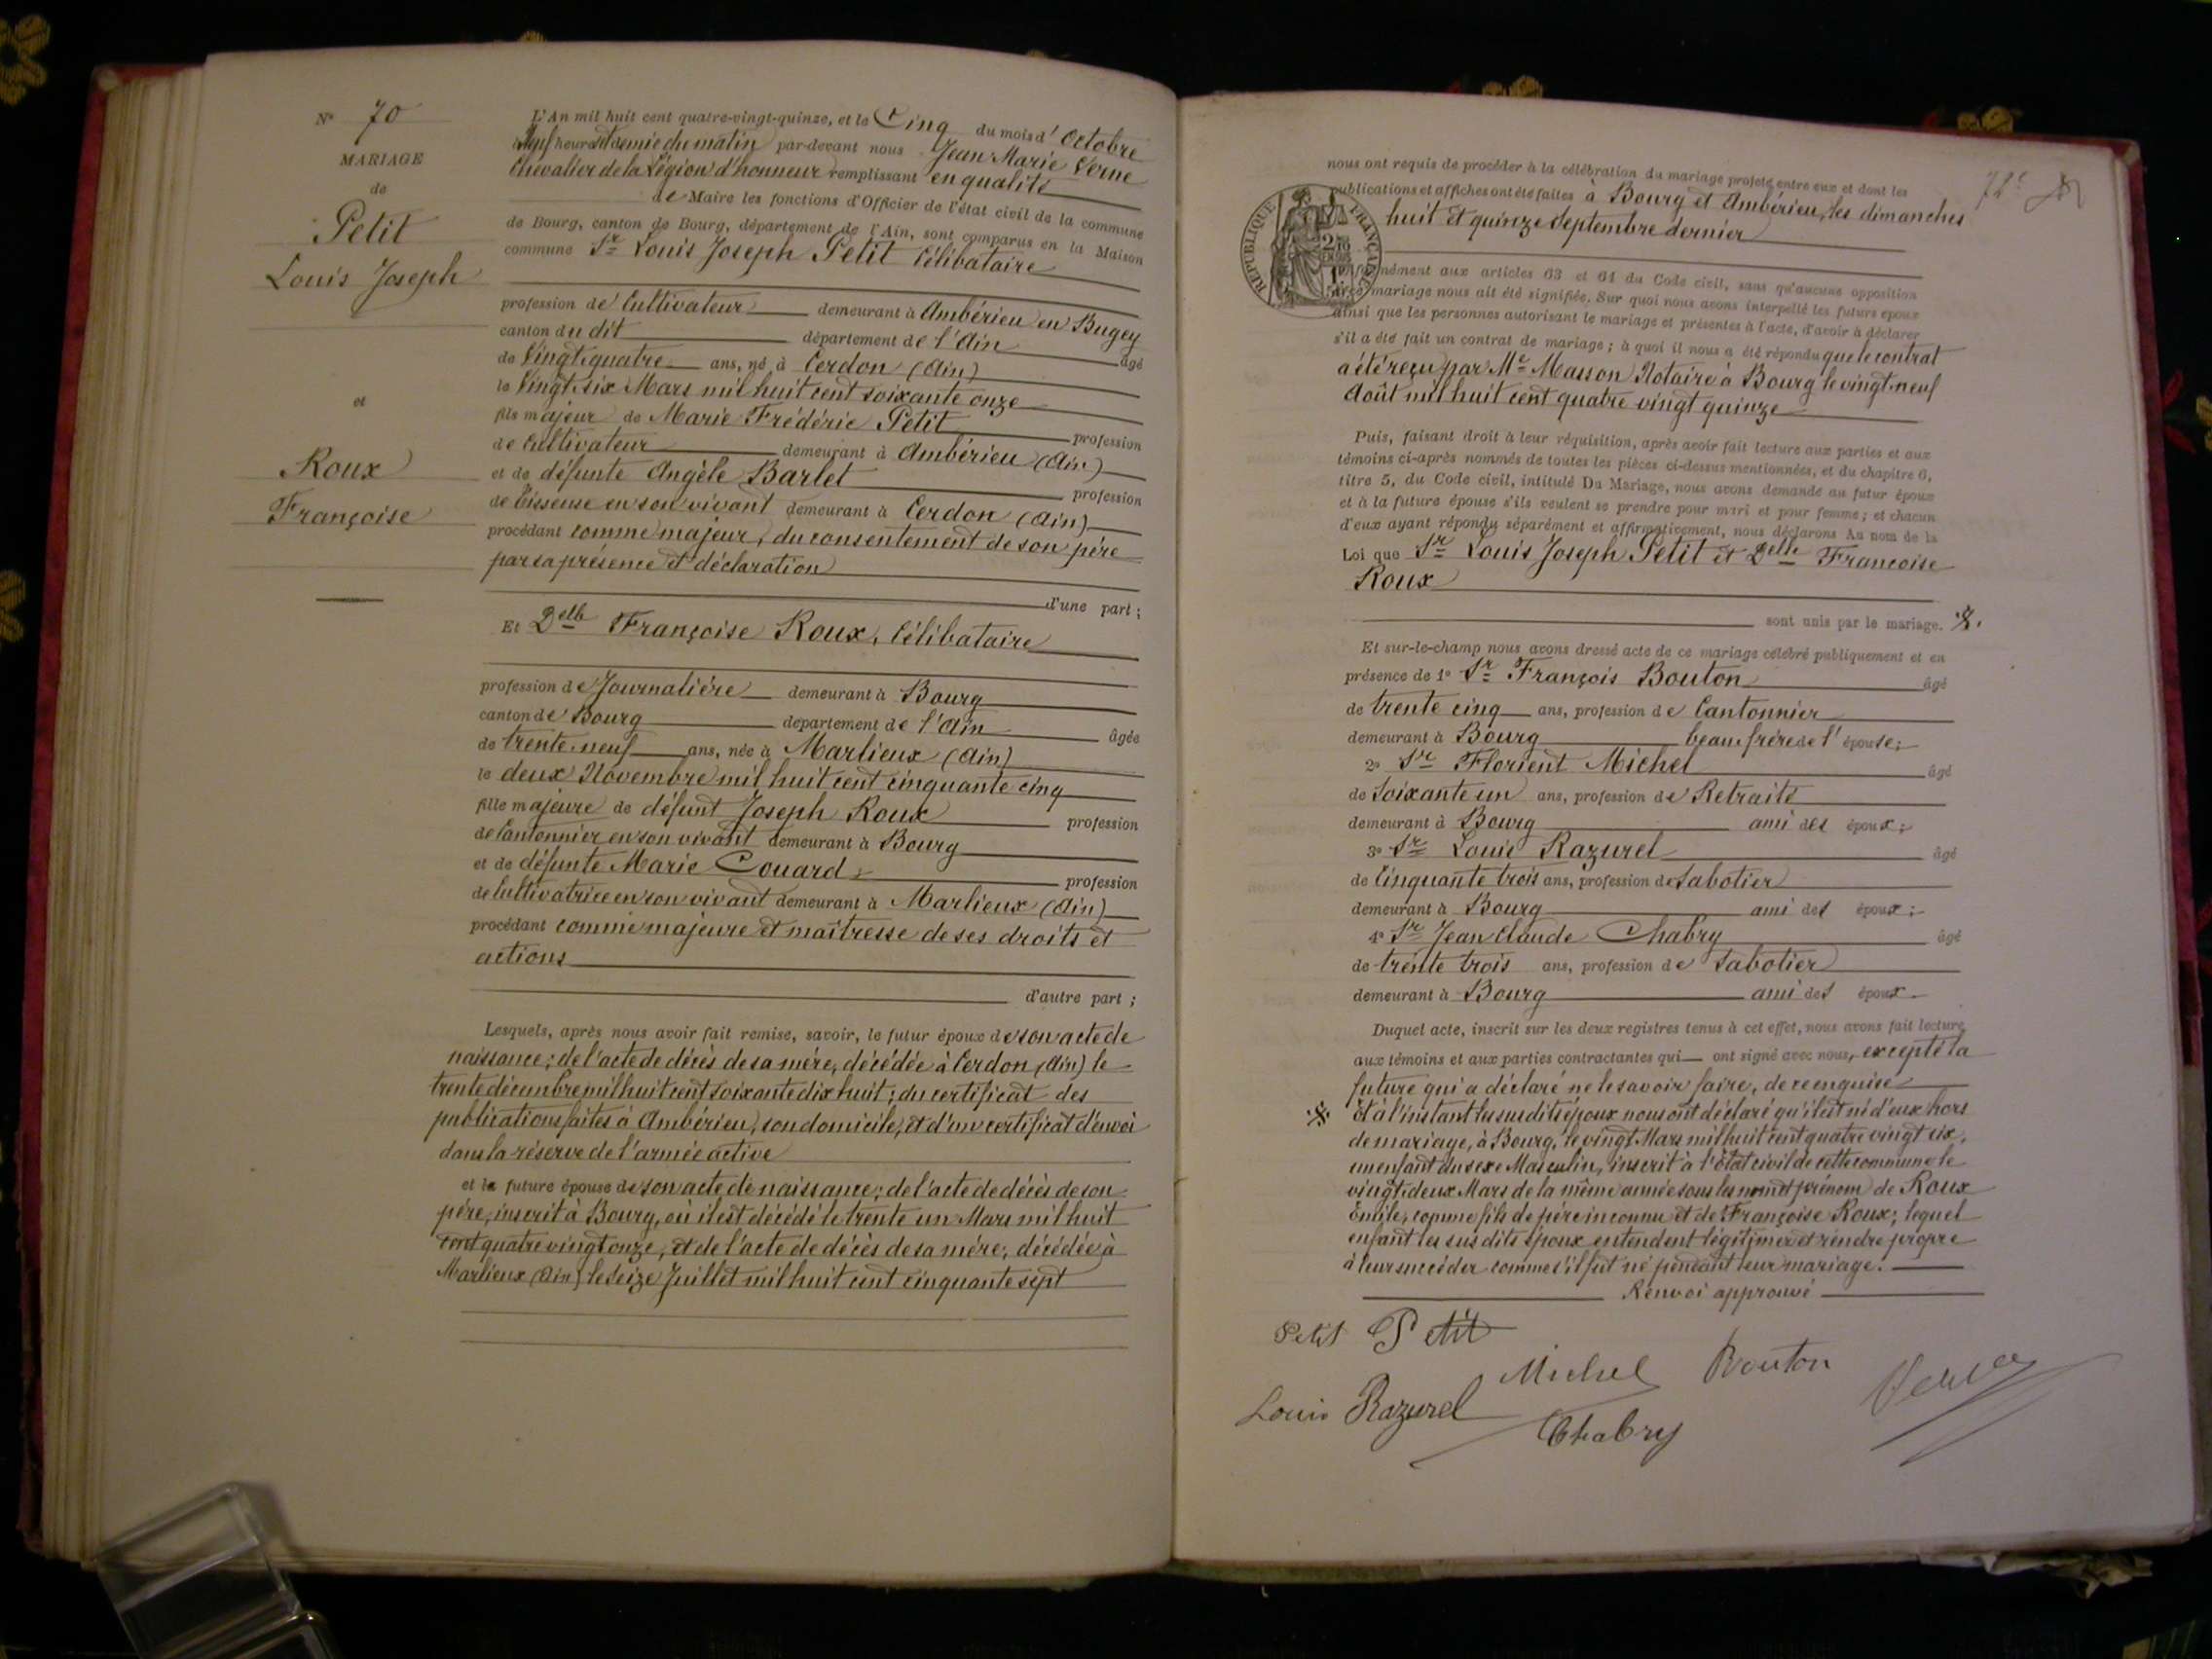 N° 70
MARIAGE
de
Petit
Louis Joseph
et
Roux
Françoise
L'An mil huit cent quatre-vingt-quinze, et le Cinq du mois d'Octobre
à Neuf heures et demie du matin par-devant nous Jean Marie Verne
Chevalier de la Légion d'honneur remplissant en qualité
de Maire les fonctions d'Officier de l'état civil de la commune
de Bourg, canton de Bourg, département de l'Ain, sont comparus en la Maison
commune Sr Louis Joseph Petit Célibataire
profession de Cultivateur demeurant à Ambérieu en Bugey
canton du dit département de l'Ain âgé
de Vingt-quatre ans, né à Cerdon (Ain)
le Vingt-six Mars mil huit cent soixante onze
fils majeur de Marie Frédéric Petit profession
de Cultivateur demeurant à Ambérieu (Ain)
et de défunte Angèle Barlet profession
de Tisseuse en son vivant demeurant à Cerdon (Ain)
procédant comme majeur, du consentement de son père
par sa présence et déclaration
d'une part ;
Et Delle Françoise Roux, Célibataire
profession de Journalière demeurant à Bourg
canton de Bourg département de l'Ain âgée
de trente-neuf ans, née à Marlieux (Ain)
le deux Novembre mil huit cent cinquante cinq
fille majeure de défunt Joseph Roux profession
de Cantonnier en son vivant demeurant à Bourg
et de défunte Marie Couard profession
de Cultivatrice en son vivant demeurant à Marlieux (Ain)
procédant comme majeure et maîtresse de ses droits et
actions
d'autre part ;
Lesquels, après nous avoir fait remise, savoir, le futur époux de son acte de
naissance; de l'acte de décès de sa mère, décédée à Cerdon (Ain) le
trente décembre mil huit cent soixante dix huit; du certificat des
publications faites à Ambérieu, son domicile, et d'un certificat d'envoi
dans la réserve de l'armée active
et la future épouse de son acte de naissance; de l'acte de décès de son
père, inscrit à Bourg, où il est décédé le trente un Mars mil huit
cent quatre vingt onze, et de l'acte de décès de sa mère, décédée à
Marlieux (Ain) le seize Juillet mil huit cent cinquante sept
nous ont requis de procéder à la célébration du mariage projeté entre eux et dont les
publications et affiches ont été faites à Bourg et Ambérieu, les dimanches
huit et quinze Septembre dernier
RÉPUBLIQUE FRANÇAISE
aux articles 63 et 64 du Code civil, sans qu'aucune opposition
mariage nous ait été signifiée. Sur quoi nous avons interpellé les futurs époux
ainsi que les personnes autorisant le mariage et présentes à l'acte, d'avoir à déclarer
s'il a été fait un contrat de mariage ; à quoi il nous a été répondu que le contrat
a été reçu par Me Masson Notaire à Bourg le vingt-neuf
Août mil huit cent quatre vingt quinze
Puis, faisant droit à leur réquisition, après avoir fait lecture aux parties et aux
témoins ci-après nommés de toutes les pièces ci-dessus mentionnées, et du chapitre 6,
titre 5, du Code civil, intitulé Du Mariage, nous avons demandé au futur époux
et à la future épouse s'ils veulent se prendre pour mari et pour femme ; et chacun
d'eux ayant répondu séparément et affirmativement, nous déclarons Au nom de la
Loi que Sr Louis Joseph Petit et Delle Francoise
Roux
sont unis par le mariage.
Et sur-le-champ nous avons dressé acte de ce mariage célébré publiquement et en
présence de 1° Sr François Bouton âgé
de trente cinq ans, profession de Cantonnier
demeurant à Bourg beau-frère de l'épouse;
2° Sr Florient Michel âgé
de Soixante un ans, profession de Retraité
demeurant à Bourg ami des époux;
3° Sr Louis Razurel âgé
de Cinquante trois ans, profession de Sabotier
demeurant à Bourg ami des époux;
4° Sr Jean Claude Chabry âgé
de trente trois ans, profession de Sabotier
demeurant à Bourg ami des époux.
Duquel acte, inscrit sur les deux registres tenus à cet effet, nous avons fait lecture
aux témoins et aux parties contractantes qui ont signé avec nous, excepté la
future qui a déclaré ne le savoir faire, de ce enquise
Et à l'instant les susdits époux nous ont déclaré qu'il est né d'eux hors
de mariage, à Bourg, le vingt Mars mil huit cent quatre vingt six,
un enfant du sexe Masculin, inscrit à l'état civil de cette commune le
vingt-deux Mars de la même année sous les nom et prénom de Roux
Emile, comme fils de père inconnu et de Françoise Roux; lequel
enfant les susdits époux entendent légitimer et rendre propre
à leur succéder comme s'il fut né pendant leur mariage.
Renvoi approuvé
Petit Petit
Michel Bouton Verne
Louis Razurel
Chabry